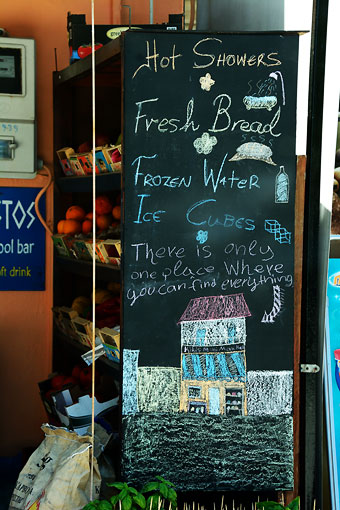 Hot Showers
Fresh Bread
Frozen Water
Ice Cubes
There is only
one place Where
you can find everything
TOS
ool bar
ft drink